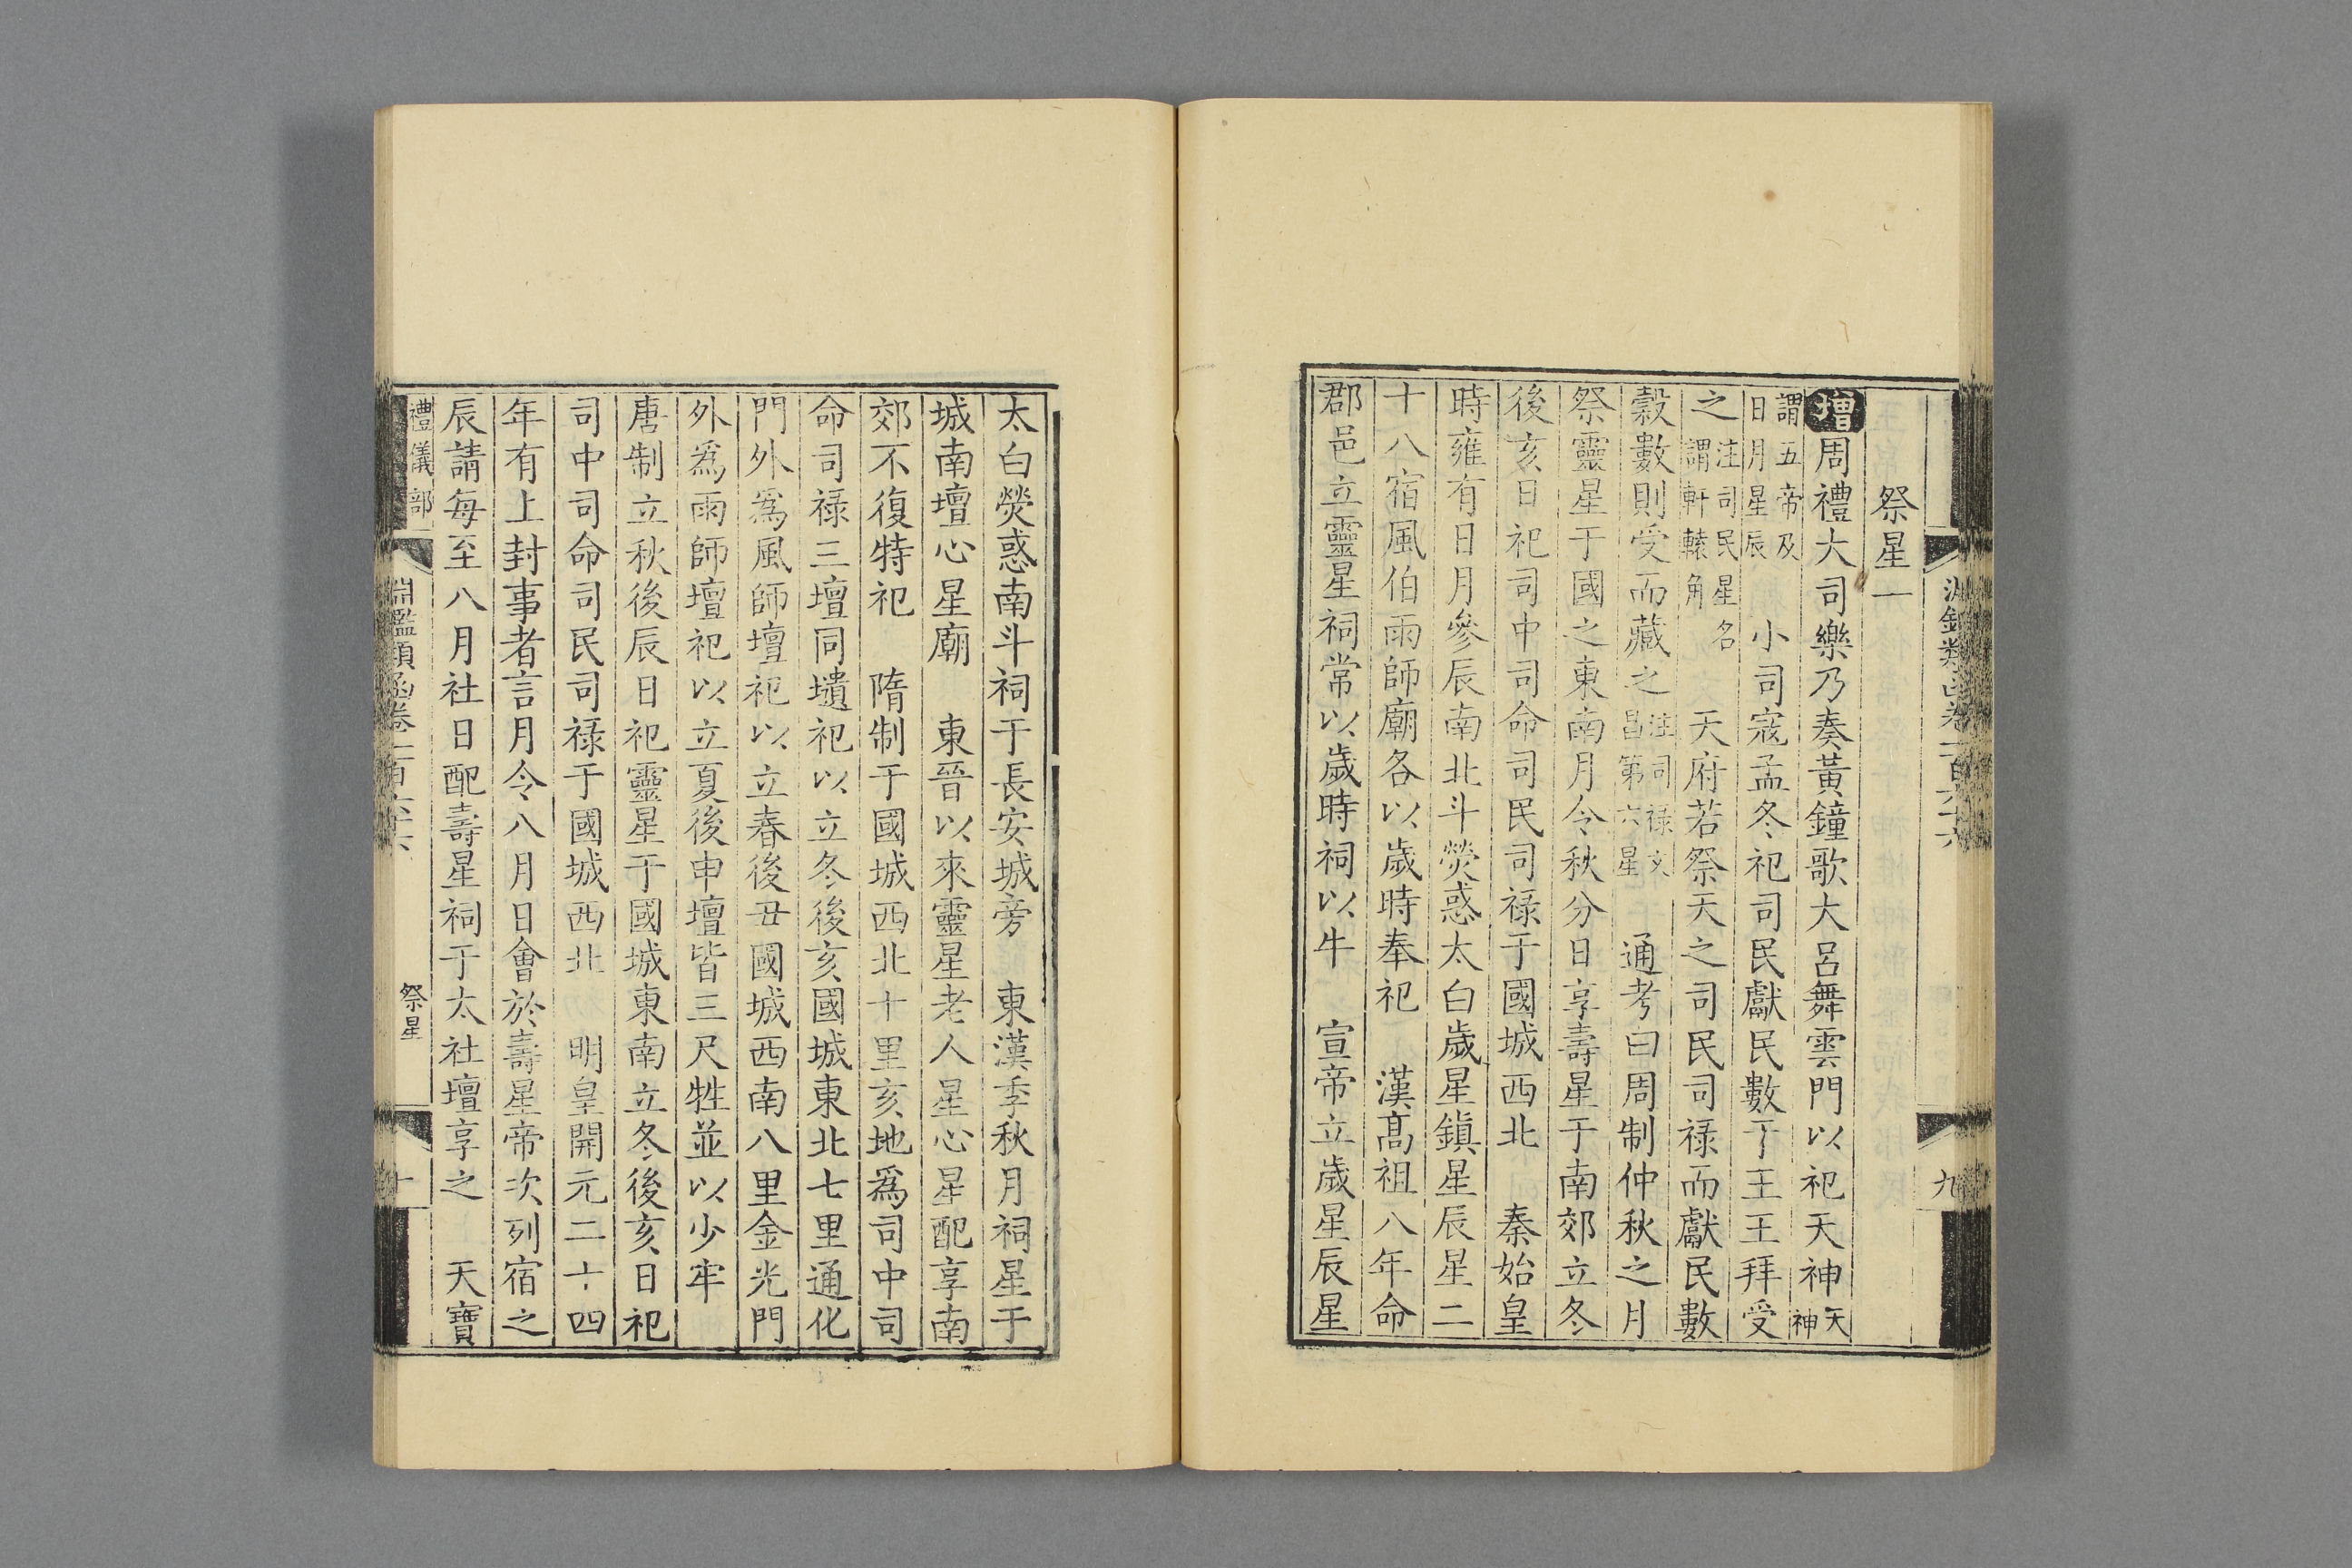 祭星一
增周禮大司樂乃奏黃鐘歌大呂舞雲門以祀天神天神
謂五帝及日月星辰 小司寇孟冬祀司民獻民數于王王拜受
之注司民星名謂軒轅角 天府若祭天之司民司祿而獻民數
穀數則受而藏之注司祿文昌第六星 通考曰周制仲秋之月
祭靈星于國之東南月令秋分日享壽星于南郊立冬
後亥日祀司中司命司民司祿于國城西北 秦始皇
時雍有日月參辰南北斗熒惑太白歲星鎮星辰星二
十八宿風伯雨師廟各以歲時奉祀 漢高祖八年命
郡邑立靈星祠常以歲時祠以牛 宣帝立歲星辰星
九
太白熒惑南斗祠于長安城旁 東漢季秋月祠星于
城南壇心星廟 東晉以來靈星老人星心星配享南
郊不復特祀 隋制于國城西北十里亥地爲司中司
命司祿三壇同壝祀以立冬後亥國城東北七里通化
門外爲風師壇祀以立春後丑國城西南八里金光門
外爲雨師壇祀以立夏後申壇皆三尺牲並以少牢
唐制立秋後辰日祀靈星于國城東南立冬後亥日祀
司中司命司民司祿于國城西北 明皇開元二十四
年有上封事者言月令八月日會於壽星帝次列宿之
辰請每至八月社日配壽星祠于太社壇享之 天寶
禮儀部 淵鑑類函卷一百六十六 祭星 十